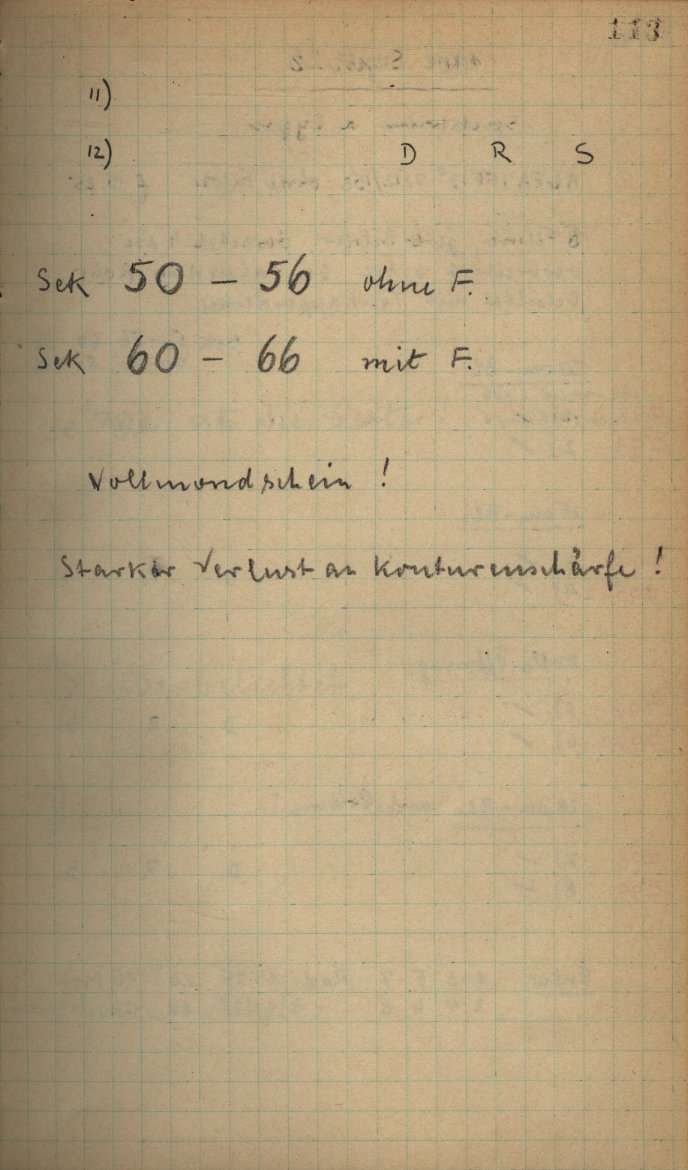 113
11)
12) D R S
Sek 50 – 56 ohne F.
Sek 60 – 66 mit F.
Vollmondschein !
Starker Verlust an Konturenschärfe !